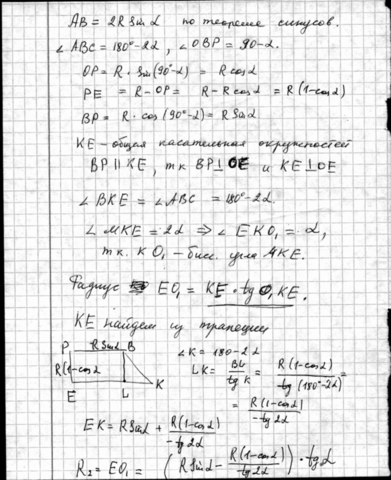 AB = 2R Sin α по теореме синусов.
∠ABC = 180°-2α, ∠OBP = 90-α.
OP = R · Sin(90°-α) = R cos α
PE = R - OP = R - R cos α = R(1-cos α)
BP = R · cos(90°-α) = R Sin α
KE - общая касательная окружностей
BP ∥ KE, тк BP ⊥ OE и KE ⊥ OE
∠BKE = ∠ABC = 180°-2α.
∠MKE = 2α ⇒ ∠EKO₁ = α,
т.к. KO₁ - бисс. угла MKE.
Радиус EO₁ = KE · tg O₁KE.
KE найдем из трапеции
P R Sin α B
R(1-cos α
E L K
∠K = 180-2α
LK = BL / tg K = R(1-cos α) / tg(180°-2α) =
= R(1-cos α) / -tg 2α
EK = R Sin α + R(1-cos α) / -tg 2α
R₂ = EO₁ = (R Sin α - R(1-cos α) / tg 2α) · tg α